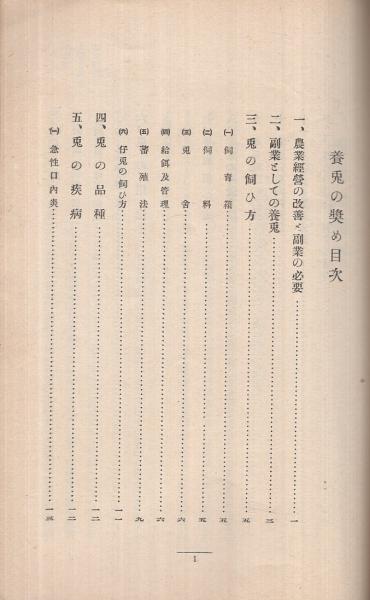 養兎の奬め目次
一、農業經營の改善と副業の必要……一
二、副業としての養兎……三
三、兎の飼ひ方……五
㈠ 飼育箱……五
㈡ 飼料……五
㈢ 兎舍……六
㈣ 給餌及管理……六
㈤ 蕃殖法……九
㈥ 仔兎の飼ひ方……一一
四、兎の品種……一二
五、兎の疾病……一二
㈠ 急性口內炎……一三
1